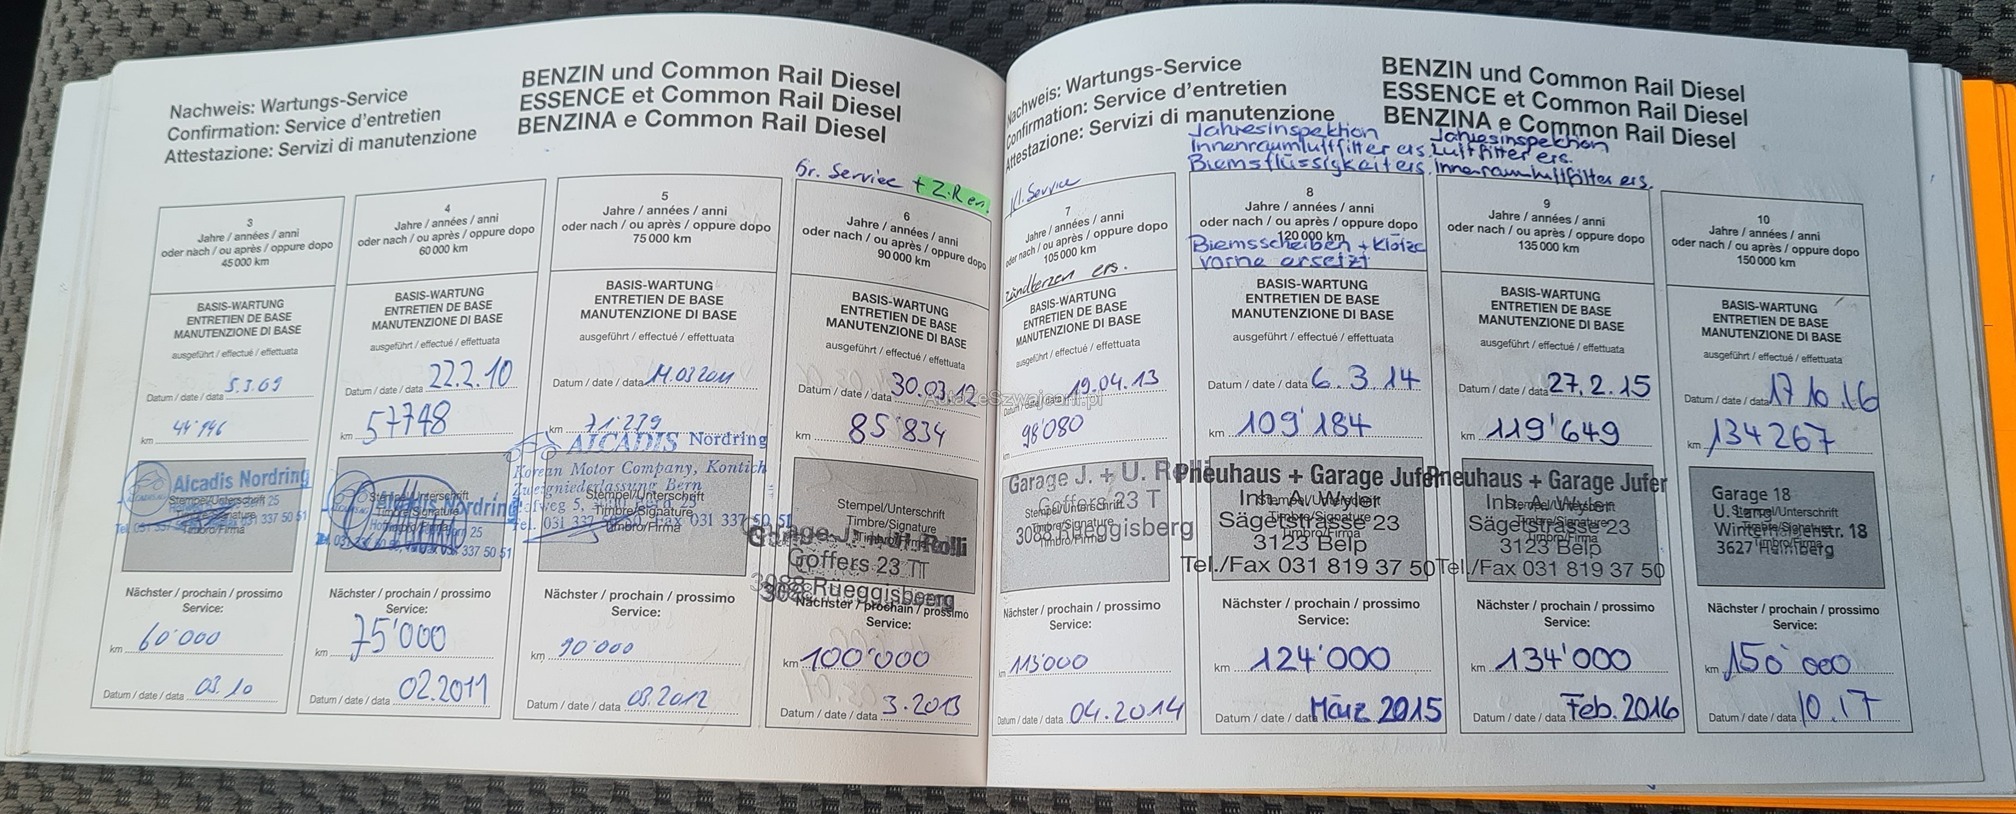 Nachweis: Wartungs-Service
Confirmation: Service d'entretien
Attestazione: Servizi di manutenzione
BENZIN und Common Rail Diesel
ESSENCE et Common Rail Diesel
BENZINA e Common Rail Diesel
3
Jahre / années / anni
oder nach / ou après / oppure dopo
45 000 km
BASIS-WARTUNG
ENTRETIEN DE BASE
MANUTENZIONE DI BASE
ausgeführt / effectué / effettuata
Datum / date / data 5.3.09
km 44'946
Alcadis Nordring
Stempel/Unterschrift 25
Timbre/Signature
Timbro/Firma
Nächster / prochain / prossimo
Service:
km 60'000
Datum / date / data 03.10
4
Jahre / années / anni
oder nach / ou après / oppure dopo
60 000 km
BASIS-WARTUNG
ENTRETIEN DE BASE
MANUTENZIONE DI BASE
ausgeführt / effectué / effettuata
Datum / date / data 22.2.10
km 57748
Alcadis Nordring
Stempel/Unterschrift
Timbre/Signature
Timbro/Firma
Nächster / prochain / prossimo
Service:
km 75'000
Datum / date / data 02.2011
5
Jahre / années / anni
oder nach / ou après / oppure dopo
75 000 km
BASIS-WARTUNG
ENTRETIEN DE BASE
MANUTENZIONE DI BASE
ausgeführt / effectué / effettuata
Datum / date / data 11.03.2011
km 71'279
ALCADIS Nordring
Korean Motor Company, Kontich
Zweigniederlassung Bern
Stempel/Unterschrift
Timbre/Signature
Timbro/Firma
Nächster / prochain / prossimo
Service:
km 90'000
Datum / date / data 03.2012
Gr. Service + Z.R en.
6
Jahre / années / anni
oder nach / ou après / oppure dopo
90 000 km
BASIS-WARTUNG
ENTRETIEN DE BASE
MANUTENZIONE DI BASE
ausgeführt / effectué / effettuata
Datum / date / data 30.03.12
km 85'834
Stempel/Unterschrift
Timbre/Signature
Timbro/Firma
Garage J. + U. Rolli
Goffers 23 TT
3088 Rüeggisberg
Nächster / prochain / prossimo
Service:
km 100'000
Datum / date / data 3.2013
Nachweis: Wartungs-Service
Confirmation: Service d'entretien
Attestazione: Servizi di manutenzione
BENZIN und Common Rail Diesel
ESSENCE et Common Rail Diesel
BENZINA e Common Rail Diesel
Kl. Service
7
Jahre / années / anni
oder nach / ou après / oppure dopo
105 000 km
Zündkerzen ers.
BASIS-WARTUNG
ENTRETIEN DE BASE
MANUTENZIONE DI BASE
ausgeführt / effectué / effettuata
Datum / date / data 19.04.13
AutazeSzwajcarii.pl
km 98'080
Garage J. + U. R
Goffers 23 T
Stempel/Unterschrift
Timbre/Signature
Timbro/Firma
3088 Rüeggisberg
Nächster / prochain / prossimo
Service:
km 113'000
Datum / date / data 04.2014
Jahresinspektion
Innenraumluftfilter ers.
Bremsflüssigkeit ers.
8
Jahre / années / anni
oder nach / ou après / oppure dopo
120 000 km
Bremsscheiben + Klötze
vorne ersetzt
BASIS-WARTUNG
ENTRETIEN DE BASE
MANUTENZIONE DI BASE
ausgeführt / effectué / effettuata
Datum / date / data 6.3.14
km 109'184
Pneuhaus + Garage Jufer
Inh. A. Wyler
Stempel/Unterschrift
Timbre/Signature
Timbro/Firma
Sägetstrasse 23
3123 Belp
Tel./Fax 031 819 37 50
Nächster / prochain / prossimo
Service:
km 124'000
Datum / date / data März 2015
Jahresinspektion
Luftfilter ers.
Innenraumluftfilter ers.
9
Jahre / années / anni
oder nach / ou après / oppure dopo
135 000 km
BASIS-WARTUNG
ENTRETIEN DE BASE
MANUTENZIONE DI BASE
ausgeführt / effectué / effettuata
Datum / date / data 27.2.15
km 119'649
Pneuhaus + Garage Jufer
Inh. A. Wyler
Stempel/Unterschrift
Timbre/Signature
Timbro/Firma
Sägetstrasse 23
3123 Belp
Tel./Fax 031 819 37 50
Nächster / prochain / prossimo
Service:
km 134'000
Datum / date / data Feb. 2016
10
Jahre / années / anni
oder nach / ou après / oppure dopo
150 000 km
BASIS-WARTUNG
ENTRETIEN DE BASE
MANUTENZIONE DI BASE
ausgeführt / effectué / effettuata
Datum / date / data 17 10.16
km 134267
Garage 18
Stempel/Unterschrift
Timbre/Signature
Timbro/Firma
3627 Heimberg
Nächster / prochain / prossimo
Service:
km 150'000
Datum / date / data 10.17